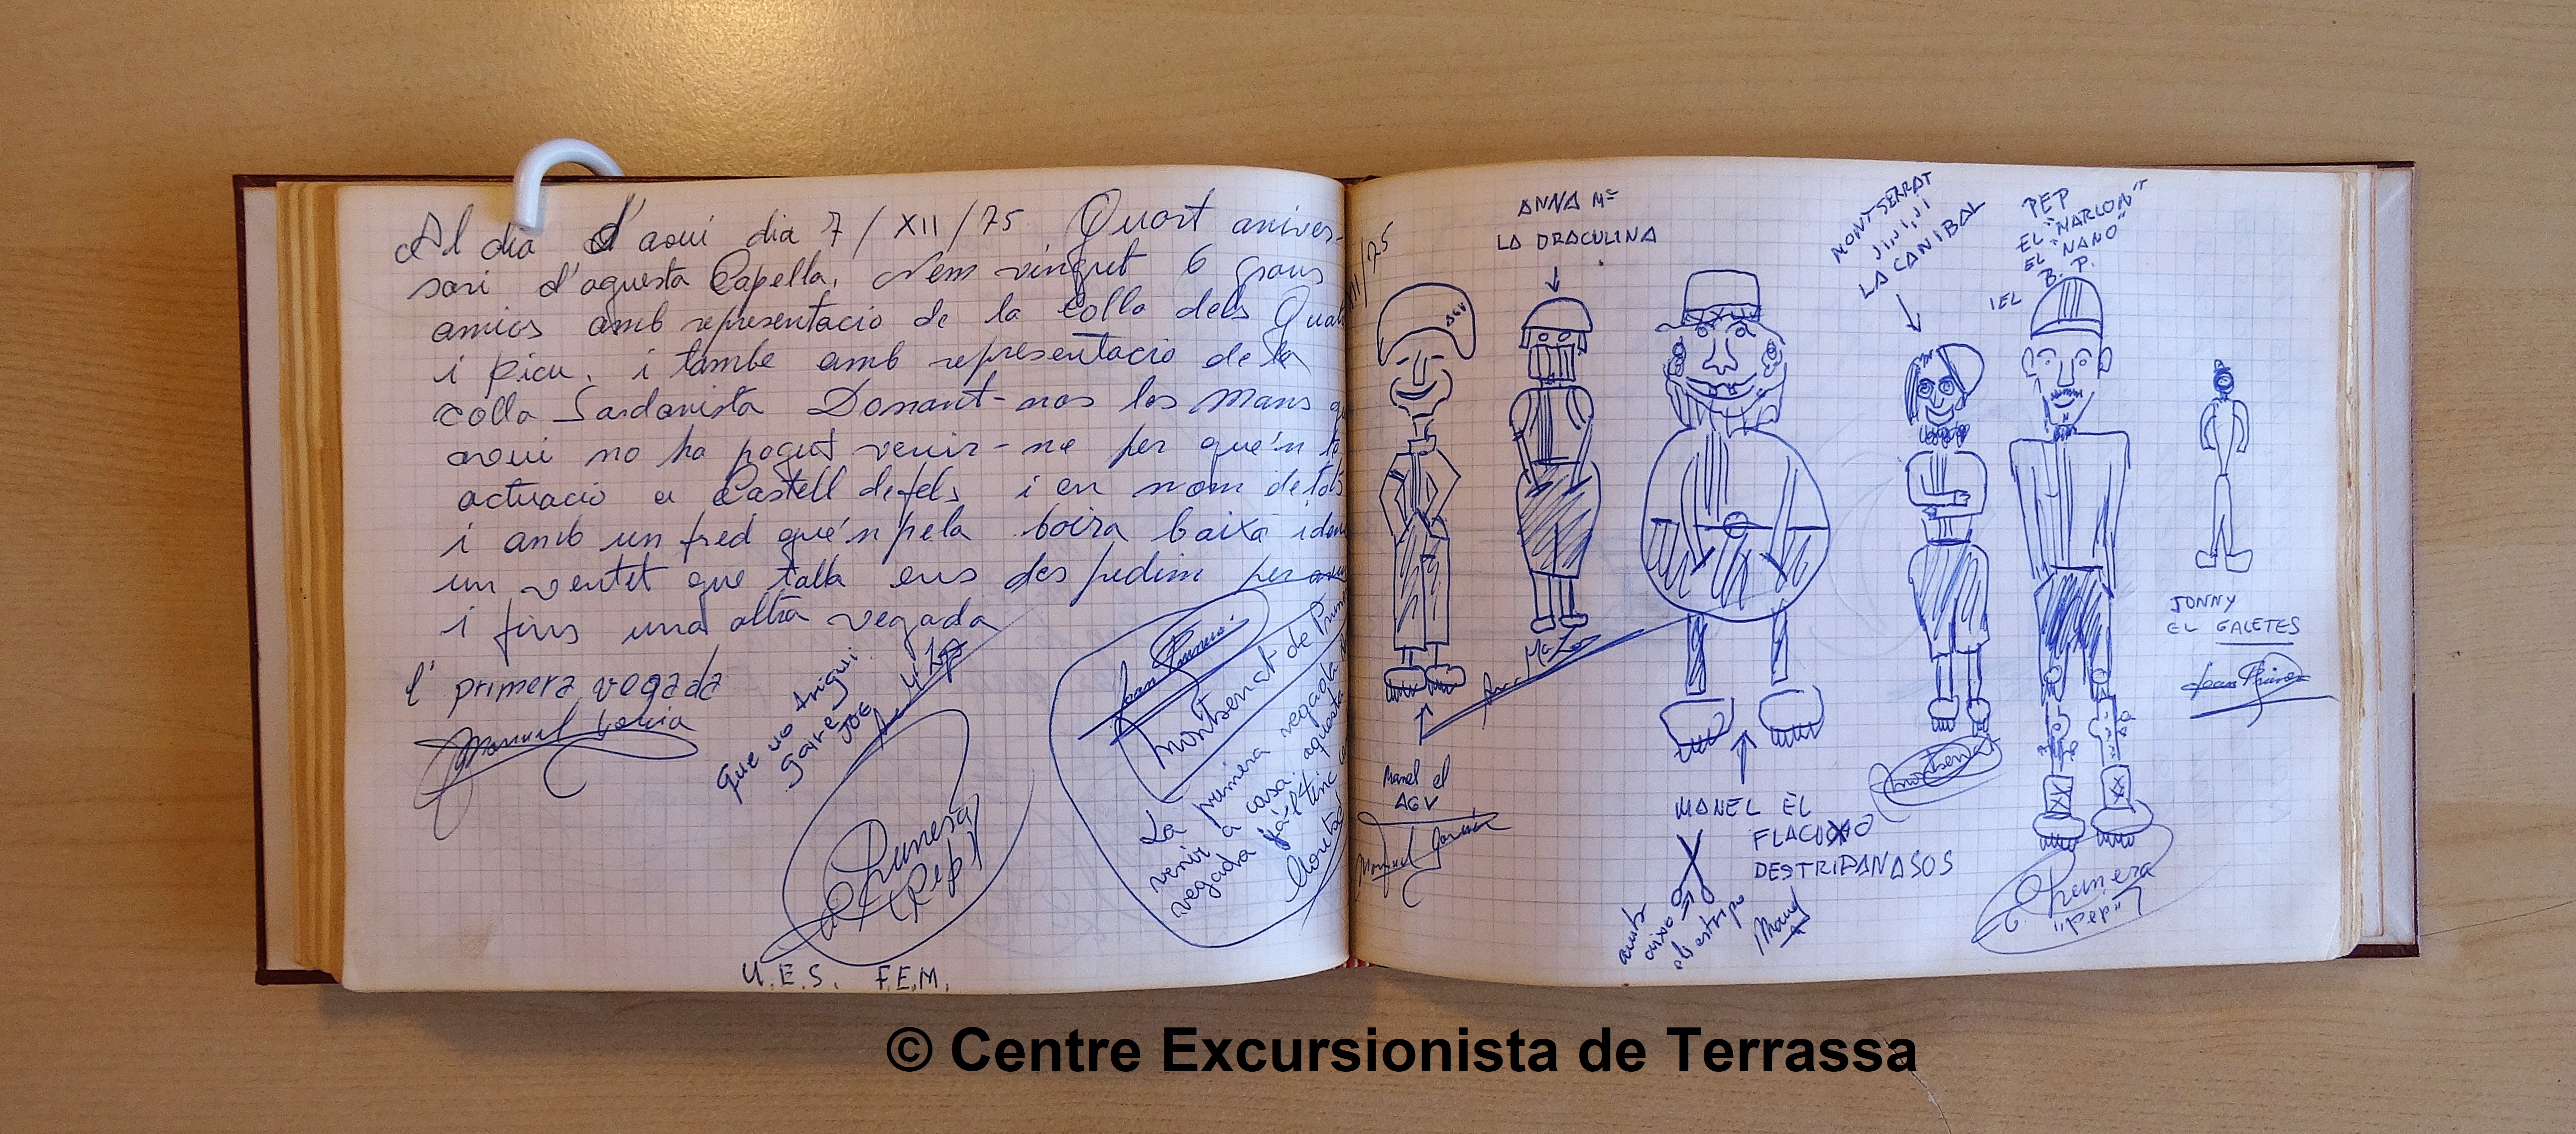 Al dia d'avui dia 7/XII/75 Quart aniver-
sari d'aquesta Capella, Hem vingut 6 grans
amics amb representacio de la colla dels
i Picu. i tambe amb representacio de la
colla Sardanista Donant-nos les Mans
avui no ha pogut venir-ne per que'n
actuacio a Castelldefels i en nom de tots
i amb un fred que'n pela boira baixa
un ventet que talla ens des pedim
i fins una altra vegada
l' primera vegada
Manuel
Que no
JOE
Primera
(Pep)
U.E.S. F.E.M.
Joan
Montserrat de
La primera vegada
venir a casa. aquesta
vegada ja-el tinc
XII/75
ANNA Mª
LA DRACULINA
MONTSERRAT
JIJIJI
LA CANIBAL
PEP
EL "MARLON"
EL "NANO"
I EL B. P.
AGV
JONNY
EL GALETES
Joan
Manel el
AGV
Manuel
MANEL EL
FLACUXO
DESTRIPANASOS
amb
aixo
els estripo
Manel
Montserrat
Primera
"Pep"
© Centre Excursionista de Terrassa